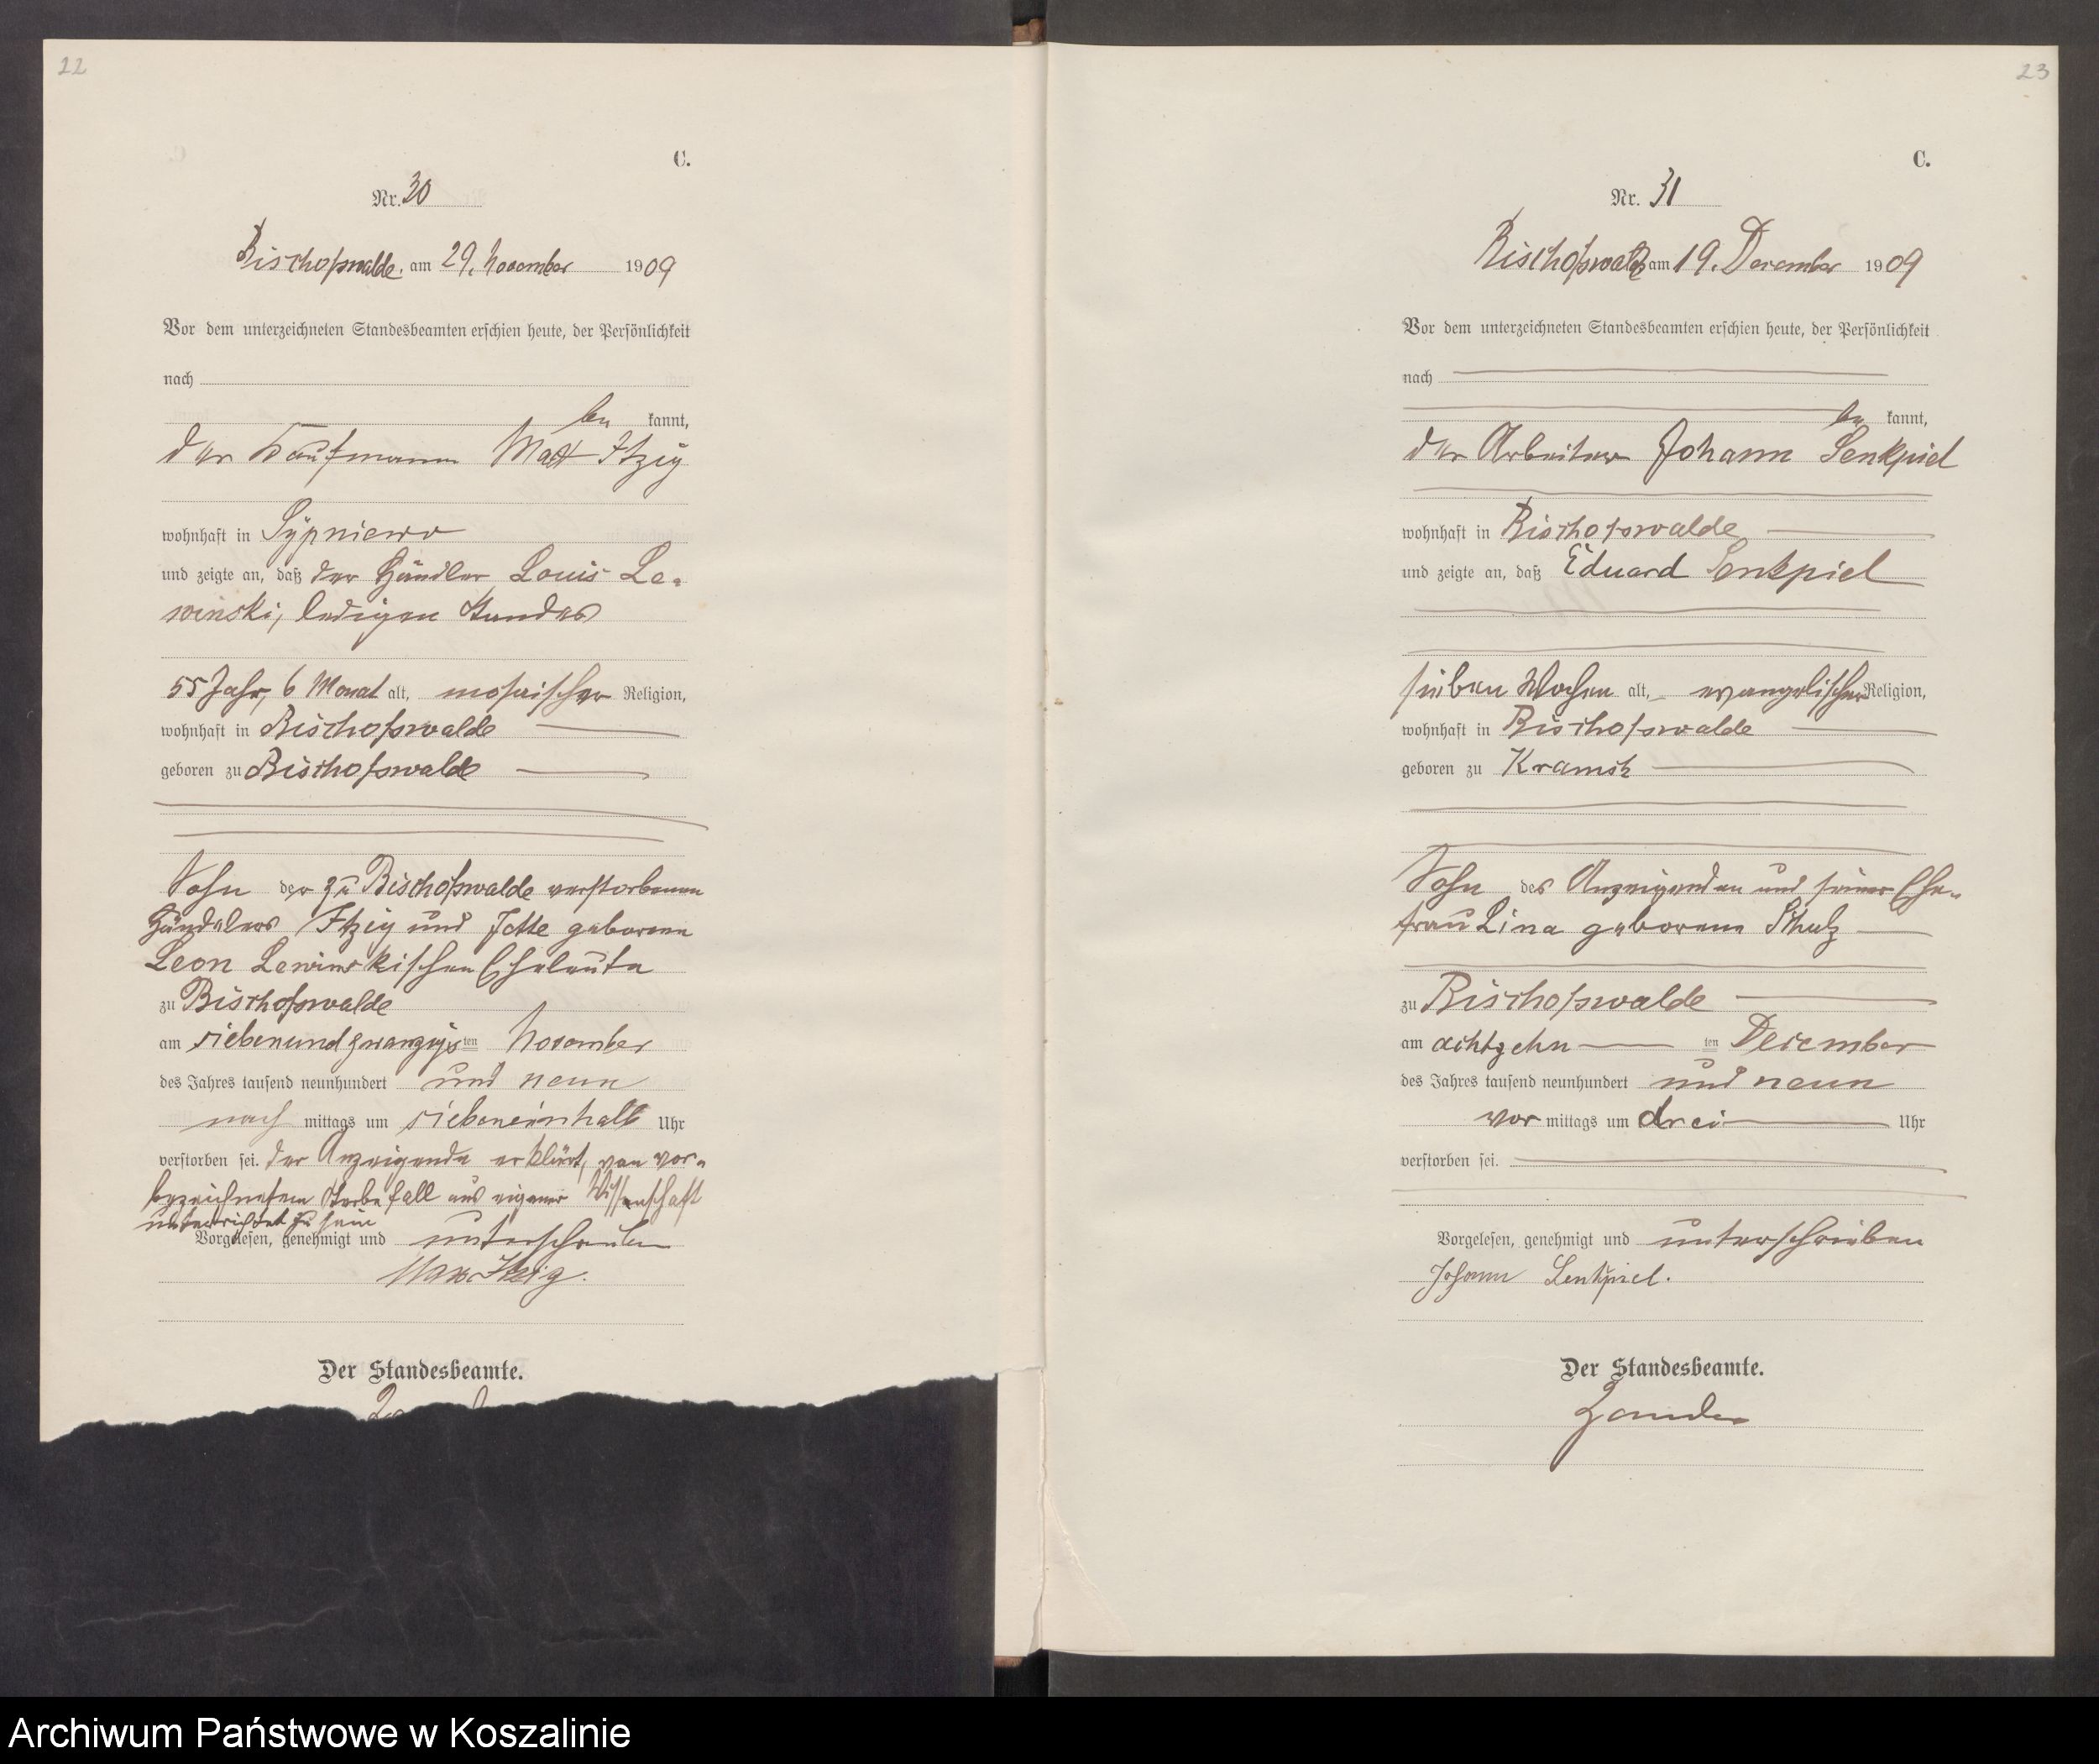 22
C.
Nr. 30
Bischofswalde. am 29. November 1909
Vor dem unterzeichneten Standesbeamten erschien heute, der Persönlichkeit
nach
be kannt,
der Kaufmann Max Itzig
wohnhaft in Sypniewo
und zeigte an, daß der Händler Louis Le-
winski, ledigen Standes
55 Jahr, 6 Monat alt, mosaischer Religion,
wohnhaft in Bischofswalde
geboren zu Bischofswalde
Sohn der zu Bischofswalde verstorbenen
Händlers Itzig und Jette geborene
Leon Lewinskischen Eheleute
zu Bischofswalde
am siebenundzwanzigsten November
des Jahres tausend neunhundert und neun
nach mittags um siebeneinhalb Uhr
verstorben sei. Der Anzeigende erklärt, von vor-
bezeichnetem Sterbefall aus eigener Wissenschaft
unterrichtet zu sein
Vorgelesen, genehmigt und unterschrieben
Max Itzig.
Der Standesbeamte.
23
C.
Nr. 31
Bischofswalde am 19. Dezember 1909
Vor dem unterzeichneten Standesbeamten erschien heute, der Persönlichkeit
nach
be kannt,
der Arbeiter Johann Senkpiel
wohnhaft in Bischofswalde
und zeigte an, daß Eduard Senkpiel
sieben Wochen alt, evangelischer Religion,
wohnhaft in Bischofswalde
geboren zu Kramsk
Sohn des Anzeigenden und seiner Ehe-
frau Lina geborene Schulz
zu Bischofswalde
am achtzehn ten Dezember
des Jahres tausend neunhundert und neun
vor mittags um drei Uhr
verstorben sei.
Vorgelesen, genehmigt und unterschrieben
Johann Senkpiel.
Der Standesbeamte.
Zander
Archiwum Państwowe w Koszalinie